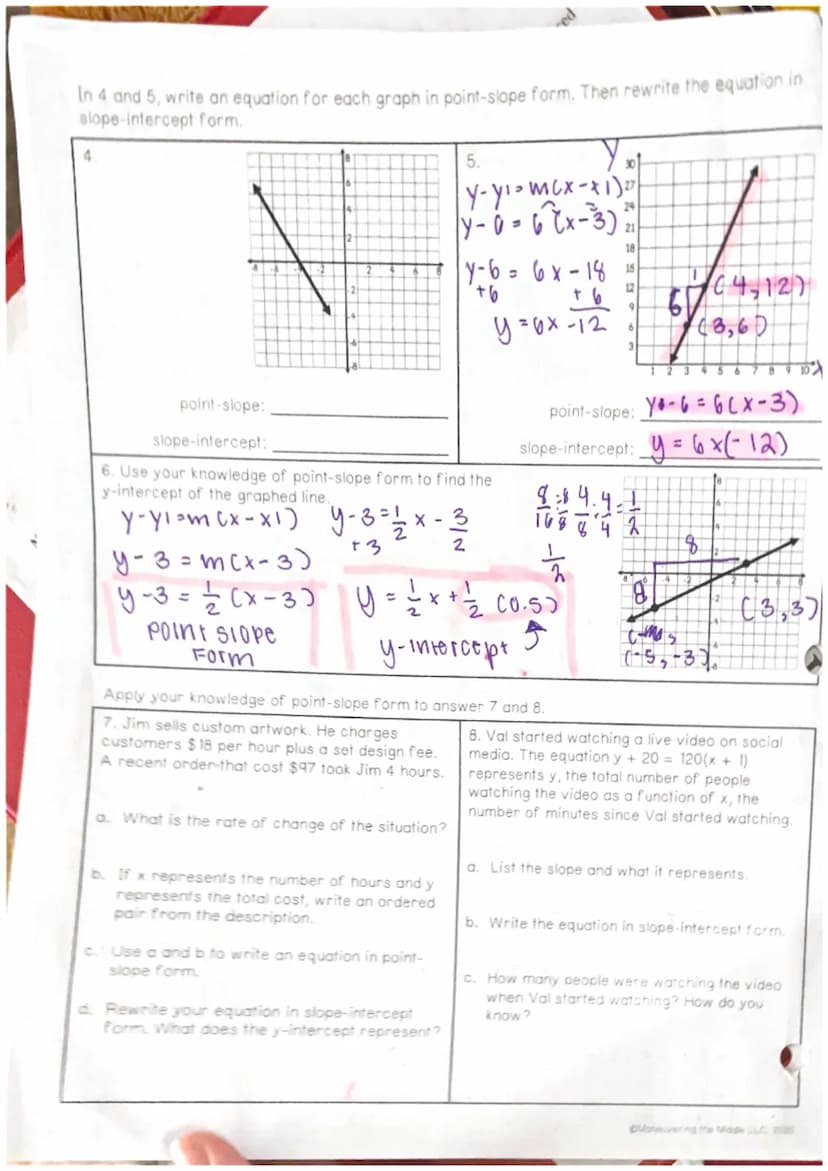 ed
In 4 and 5, write an equation for each graph in point-slope form. Then rewrite the equation in
slope-intercept form.
4.
8
6
4
2
-8 -6 -2 2 4 6 8
-2
-4
-6
-8
point-slope:
slope-intercept:
5.
y-y1=m(x-x1)
y-6=6(x-3)
y-6 = 6x-18
+6 +6
y=6x-12
Y
30
27
24
21
18
15
12
9
6
3
1 2 3 4 5 6 7 8 9 10 X
1
6
(4,12)
(3,6)
point-slope: y-6=6(x-3)
slope-intercept: y=6x(-12)
6. Use your knowledge of point-slope form to find the
y-intercept of the graphed line.
y-y1=m(x-x1)
y-3=m(x-3)
y-3=1/2(x-3)
POINT SLOPE
FORM
y-3=1/2x-3/2
+3
y=1/2x+1/2 (0.5)
y-intercept
8/16÷8/8 4/8÷4/4=1/2
1/2
8
8
(3,3)
(-5,-3)
Apply your knowledge of point-slope form to answer 7 and 8.
7. Jim sells custom artwork. He charges
customers $18 per hour plus a set design fee.
A recent order that cost $97 took Jim 4 hours.
a. What is the rate of change of the situation?
b. If x represents the number of hours and y
represents the total cost, write an ordered
pair from the description.
c. Use a and b to write an equation in point-
slope form.
d. Rewrite your equation in slope-intercept
form. What does the y-intercept represent?
8. Val started watching a live video on social
media. The equation y + 20 = 120(x + 1)
represents y, the total number of people
watching the video as a function of x, the
number of minutes since Val started watching.
a. List the slope and what it represents.
b. Write the equation in slope-intercept form.
c. How many people were watching the video
when Val started watching? How do you
know?
©Maneuvering the Middle LLC, 2020